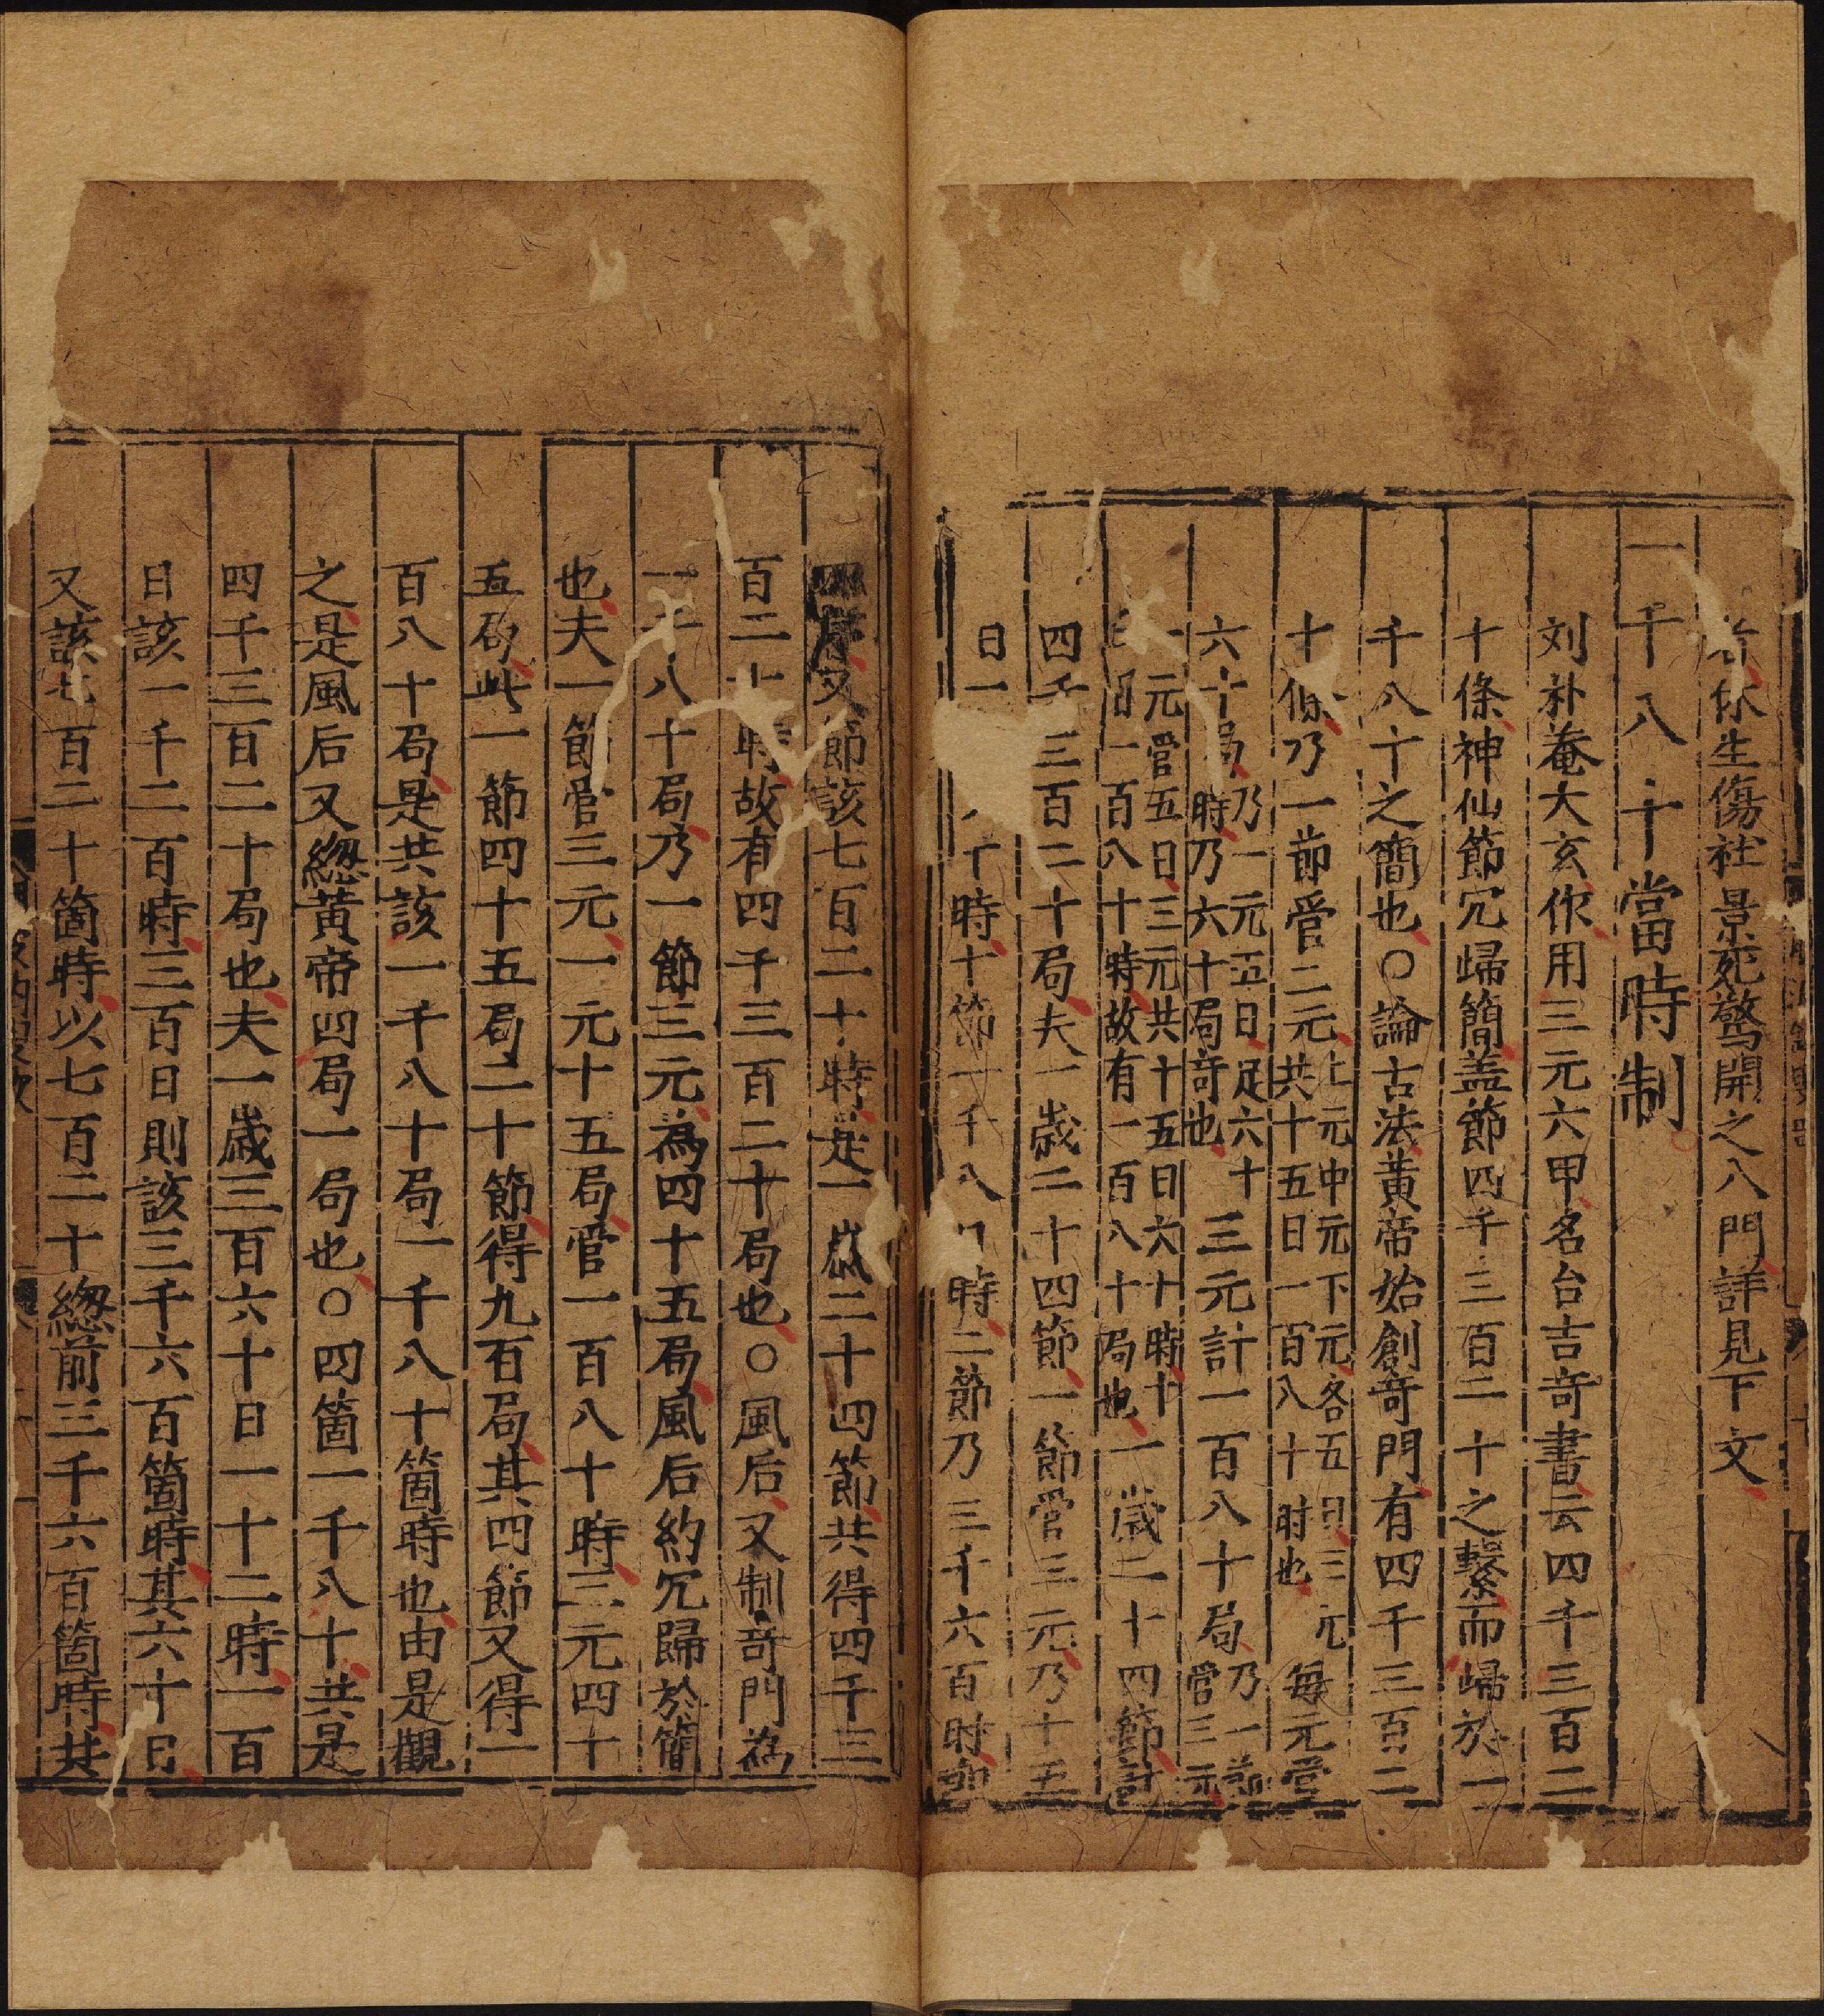 休生傷社景死驚開之八門詳見下文
一千八十當時制
刘朴菴大玄作用三元六甲名台吉竒書云四千三百二
十條神仙節冗歸簡盖節四千三百二十之繫而歸於一
千八十之簡也〇論古法黃帝始創竒門有四千三百二
十條乃一節管二元上元中元下元各五日三元共十五日一百八十时也每元管
六十局乃一元五日足六十時乃六十局竒也三元計一百八十局乃一節管三元
一元管五日三元共十五日六十時十日一百八十時故有一百八十局也一歲二十四節計
四千三百二十局夫一歲二十四節一節管三元乃十五
日一十時十節一千八時二節乃三千六百时
又節該七百二十時是一歲二十四節共得四千三
百二十時故有四千三百二十局也〇風后又制竒門為
一千八十局乃一節三元為四十五局風后約冗歸於簡
也夫一節管三元一元十五局管一百八十時三元四十
五局此一節四十五局二十節得九百局其四節又得一
百八十局是共該一千八十局一千八十箇時也由是觀
之是風后又緫黃帝四局一局也〇四箇一千八十共是
四千三百二十局也夫一歲三百六十日一十二時一百
日該一千二百時三百日則該三千六百箇時其六十日
又該七百二十箇時以七百二十緫前三千六百箇時共